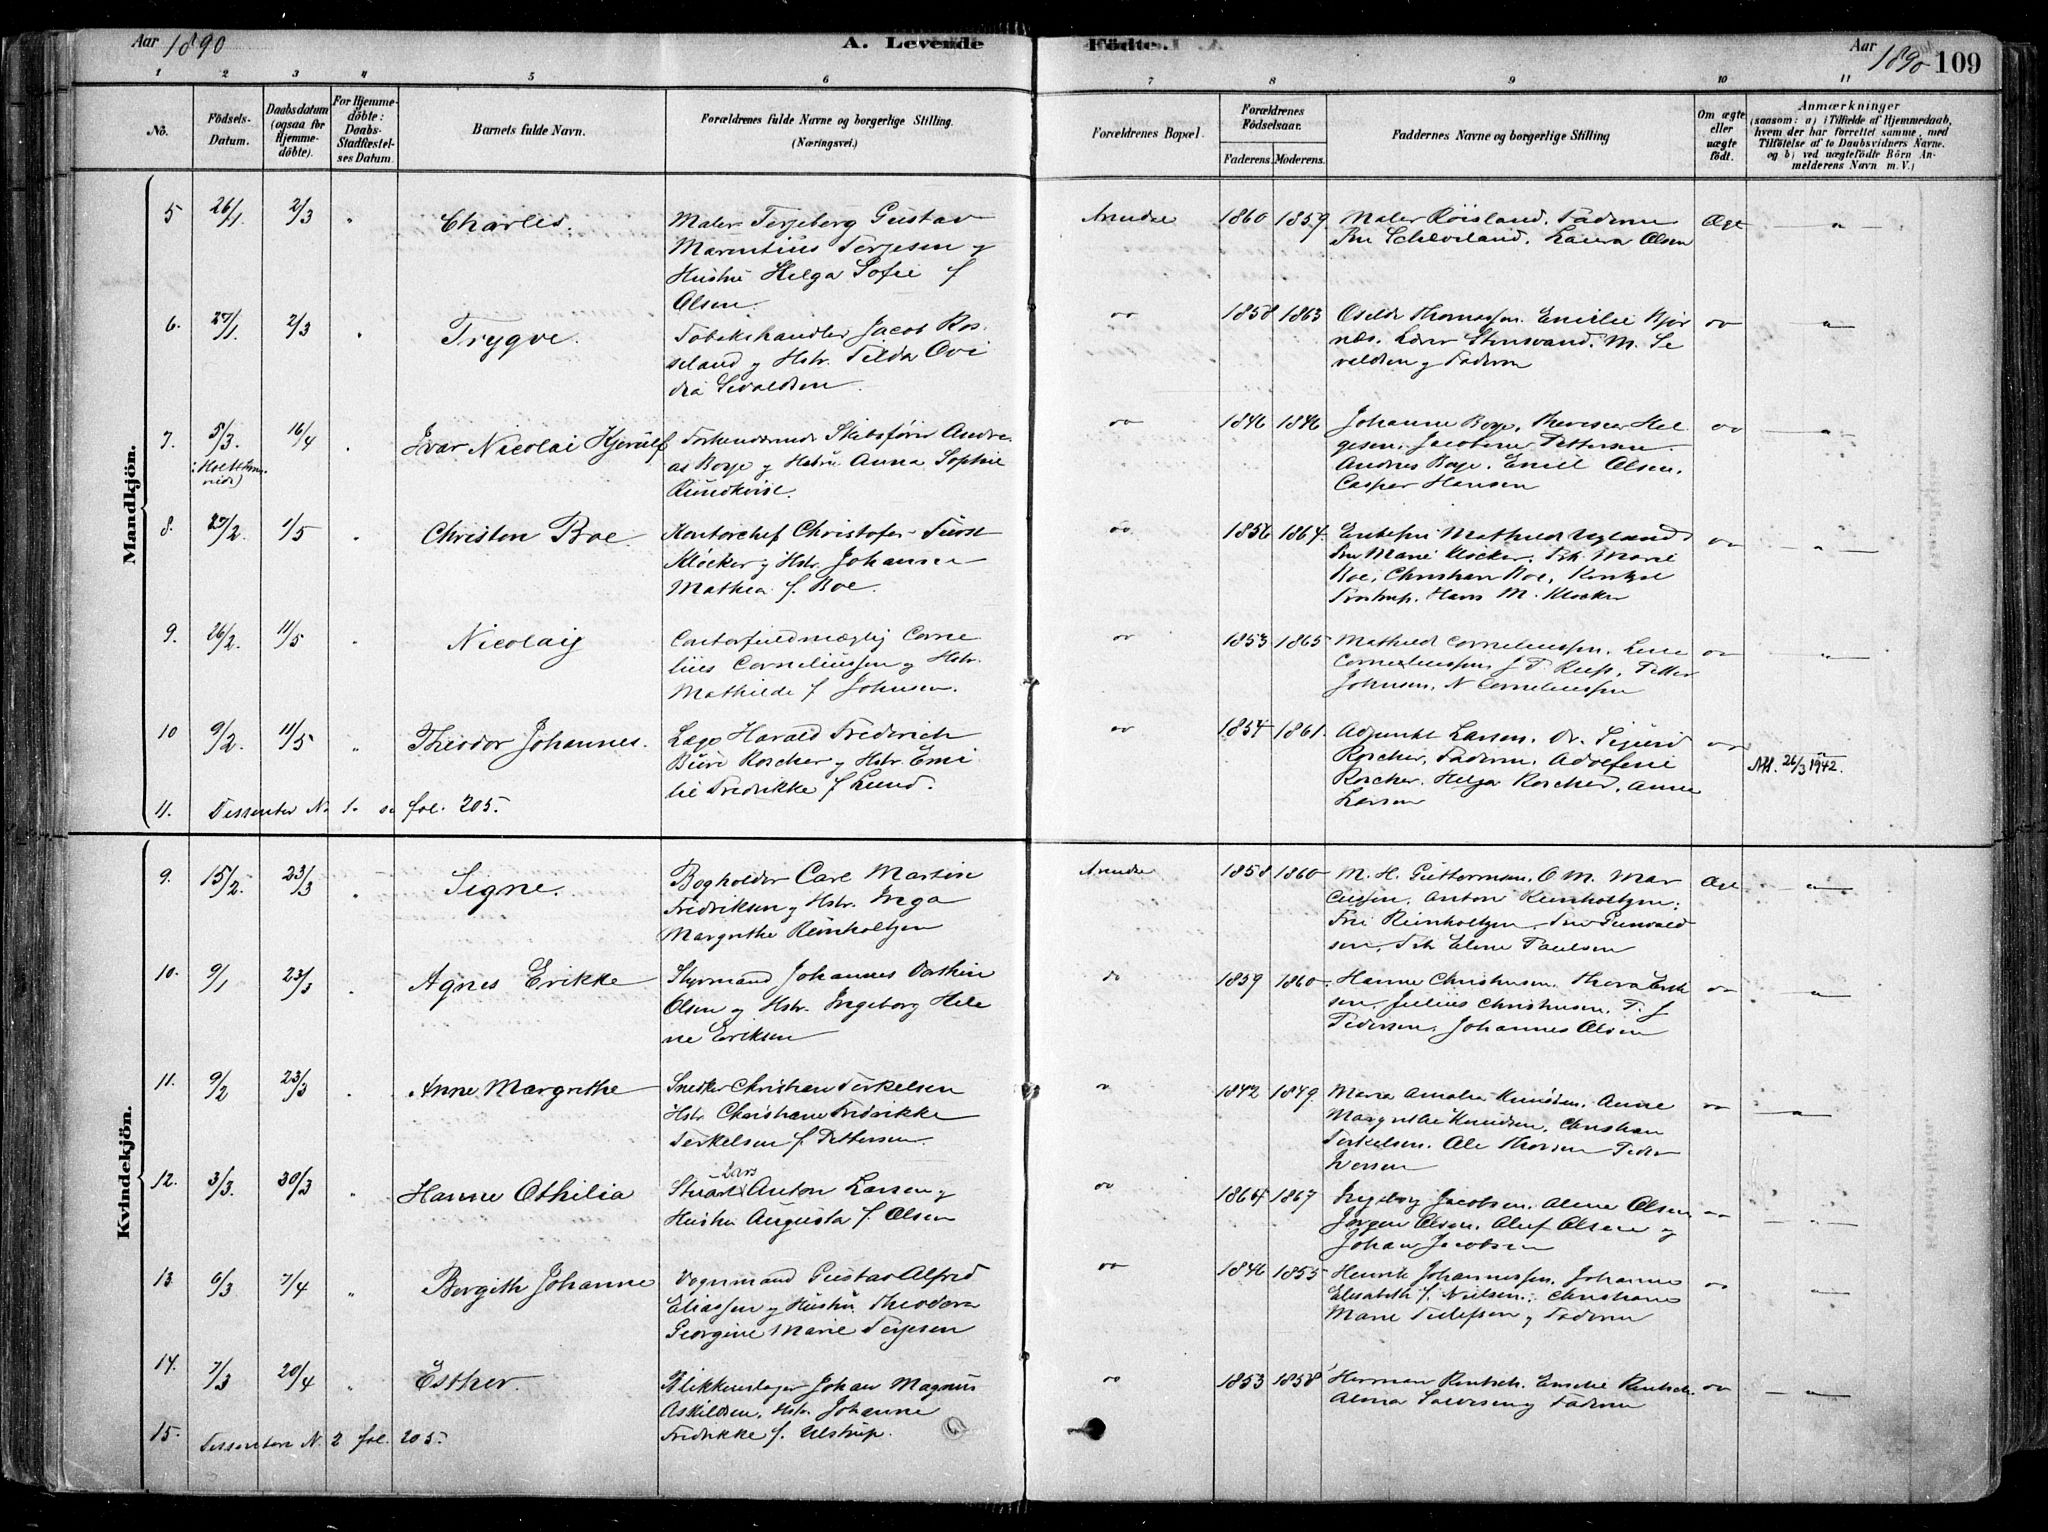 Aar 1890
A. Levende
Födte.
Aar 1890
109
1 2 3 4 5 6 7 8 9 10 11
No.
Födsels-
Datum.
Daabsdatum
(ogsaa for
Hjemme-
döbte).
For Hjemme-
döbte:
Daabs-
Stadfæstel-
ses Datum.
Barnets fulde Navn.
Forældrenes fulde Navne og borgerlige Stilling.
(Næringsvei.)
Forældrenes Bopæl.
Forældrenes
Födselsaar.
Faderens. Moderens.
Faddernes Navne og borgerlige Stilling
Om ægte
eller
uægte
födt.
Anmærkninger
(saasom: a) i Tilfælde af Hjemmedaab,
hvem der har forrettet samme, med
Tilföielse af to Daabsvidners Navne,
og b) ved uægtefödte Börn An-
melderens Navn m. V.)
Mandkjön.
5 26/1 2/3 " Charles.
Maler Terjeberg Gustav
Marentius Terjesen og
Hustru Helga Sofie f
Olsen.
Arendal 1860 1859
Maler Röisland. Faderen
Laura Olsen
Ægt "
6. 27/1 2/3 " Trygve.
Tobakshandler Jacob Ros-
seland og Hstr. Tilda Ovi
dia Sevaldsen.
do 1858 1863
Thomassen. Emilie Bjor
næs. Stensvand. M. Se
valdsen og Faderen
do "
7. 5/3. 16/4 " Ivar Nicolai Hjerulf
Forhenværende Skibsförer Andre
as Boye og Hstru Anna Sophie
Rundkvist.
do 1846 1846
Johanne Boye, Hel
gesen, Jacobine Pettersen
Andreas Boye. Emil Olsen.
Casper Hansen
do "
8. 27/2. 1/5 " Christen Boe.
Kontorchef Christofer Fürst
Klöcker og Hstr. Johanna
Mathea f. Boe.
do 1856 1864
Mathilde Ugland
Fru Marie Klocker. Frk. Marie
Boe, Christian Boe,
Hans M. Klocker
do "
9. 26/2. 11/5 " Nicolay
Contorfuldmægtig Corne
lius Corneliussen og Hstr.
Mathilde f Johnsen.
do 1853 1865
Mathilde Corneliussen, Lena
Corneliussen J T Petter
Johnsen, N Corneliussen
do "
10 9/2. 11/5 " Theodor Johannes.
Læge Harald Frederich
Roscher og Hstr. Emi
lie Fredrikke f Lund.
do 1854 1861.
Adjunkt Larsen. Dr. Sigurd
Roscher, Faderen. Adolfine
Roscher. Helga Roscher, Anna
Larsen
do Att. 26/3 1942.
11. Dissenter No 1. se fol. 205.
Kvindekjön.
9. 15/2. 23/3 " Signe.
Bogholder Carl Martin
Fredriksen og Hstr. Inga
Margrethe Reinholtzen
Arendal 1858 1860
M. H. Guttormsen. O M. Mar
cussen. Anton Reinholtzen.
Fru Reinholtzen
sen. Frk Eline Paulsen
Ægt "
10. 9/1 23/3 " Agnes Erikke
Styrmand Johannes
Olsen og Hstr. Ingeborg Hele
ne Eriksen
do 1859 1860
Hanne Christensen. Thora Erik
sen, Julius Christensen. T. J
Pedersen. Johannes Olsen
do "
11. 9/2 23/3 " Anne Margrethe
Snedker Christian Terkelsen
Hstr Christiane Fredrikke
Terkelsen f. Pettersen.
" 1842 1849
Maria Amalia Knudsen. Anne
Margrethe Knudsen, Christian
Terkelsen. Ole Thorsen Peder
Iversen
do "
12. 3/3. 30/3 " Hanne Othilia
Lars
Stuart Anton Larsen og
Hustru Augusta f. Olsen
do 1864 1867
Ingeborg Jacobsen. Olsen
Jørgen Olsen. Oluf Olsen og
Johan Jacobsen
do "
13. 6/3 7/4 " Bergith Johanne
Vognmand Gustav Alfred
Eliassen og Hustru Theodora
Georgine Marie Terjesen
do 1846 1855
Henrik Johannessen. Johanne
Elisabeth f. Nielsen. Christiane
Marie Tellefsen og Faderen
do "
14. 7/3 20/4 " Esther.
Blikkenslager Johan Magnus
Askildsen. Hstr. Johanne
Fredrikke f. Ulstrup.
do 1853 1858
Herman Rentsch. Emilie Rentsch.
Alma Salvesen og Faderen
do "
15. Dissenter N. 2 fol. 205.